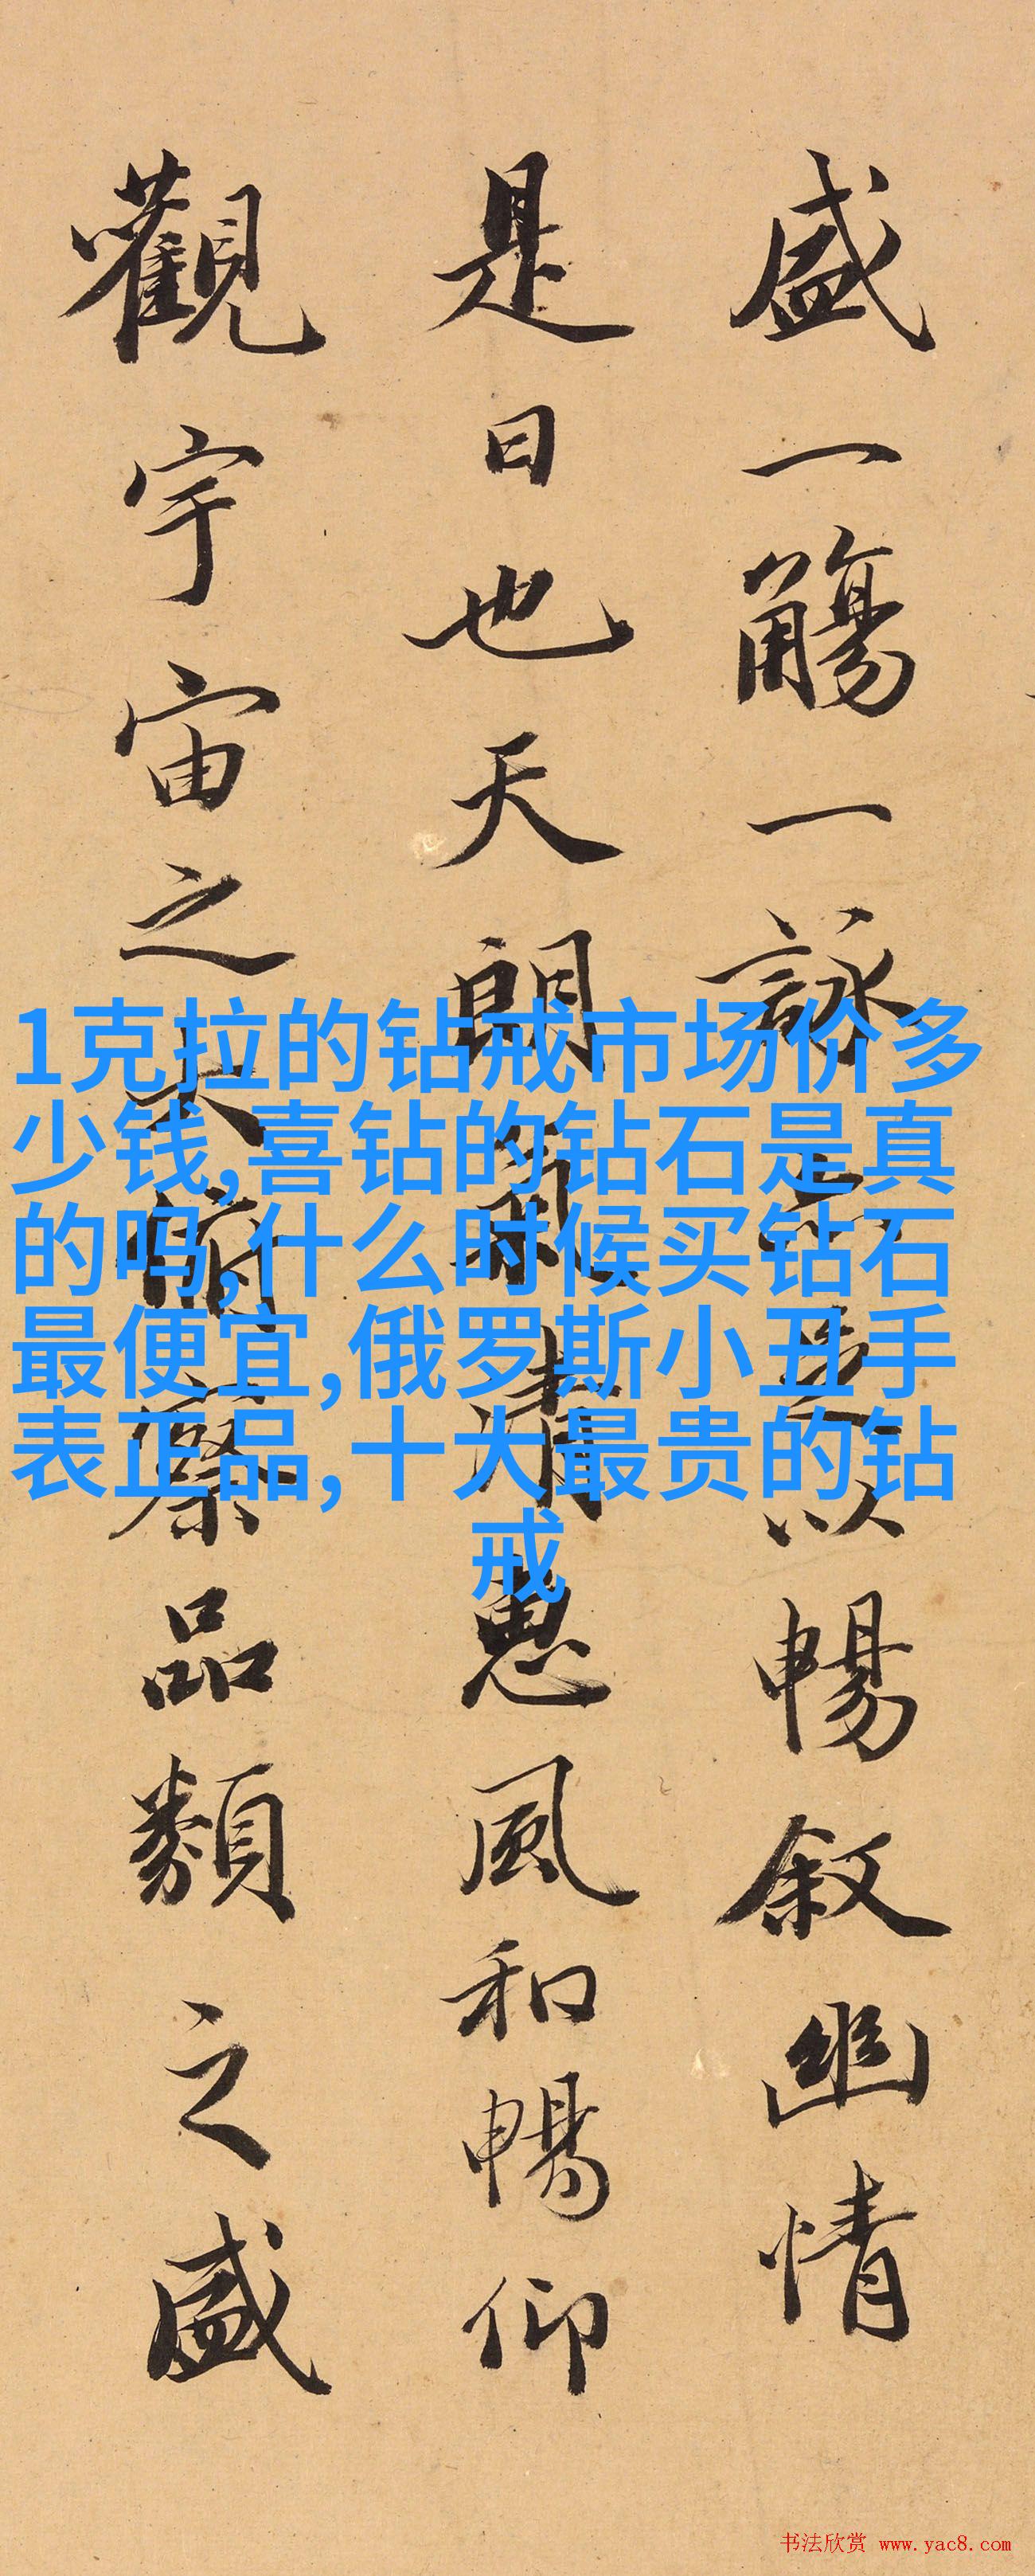 盛一觴一詠亦足以暢叙幽情
是日也天朗氣清惠風和暢仰
觀宇宙之大俯察品類之盛
1克拉的钻戒市场价多
少钱,喜钻的钻石是真
的吗,什么时候买钻石
最便宜,俄罗斯小丑手
表正品,十大最贵的钻
戒
书法欣赏 www.yac8.com